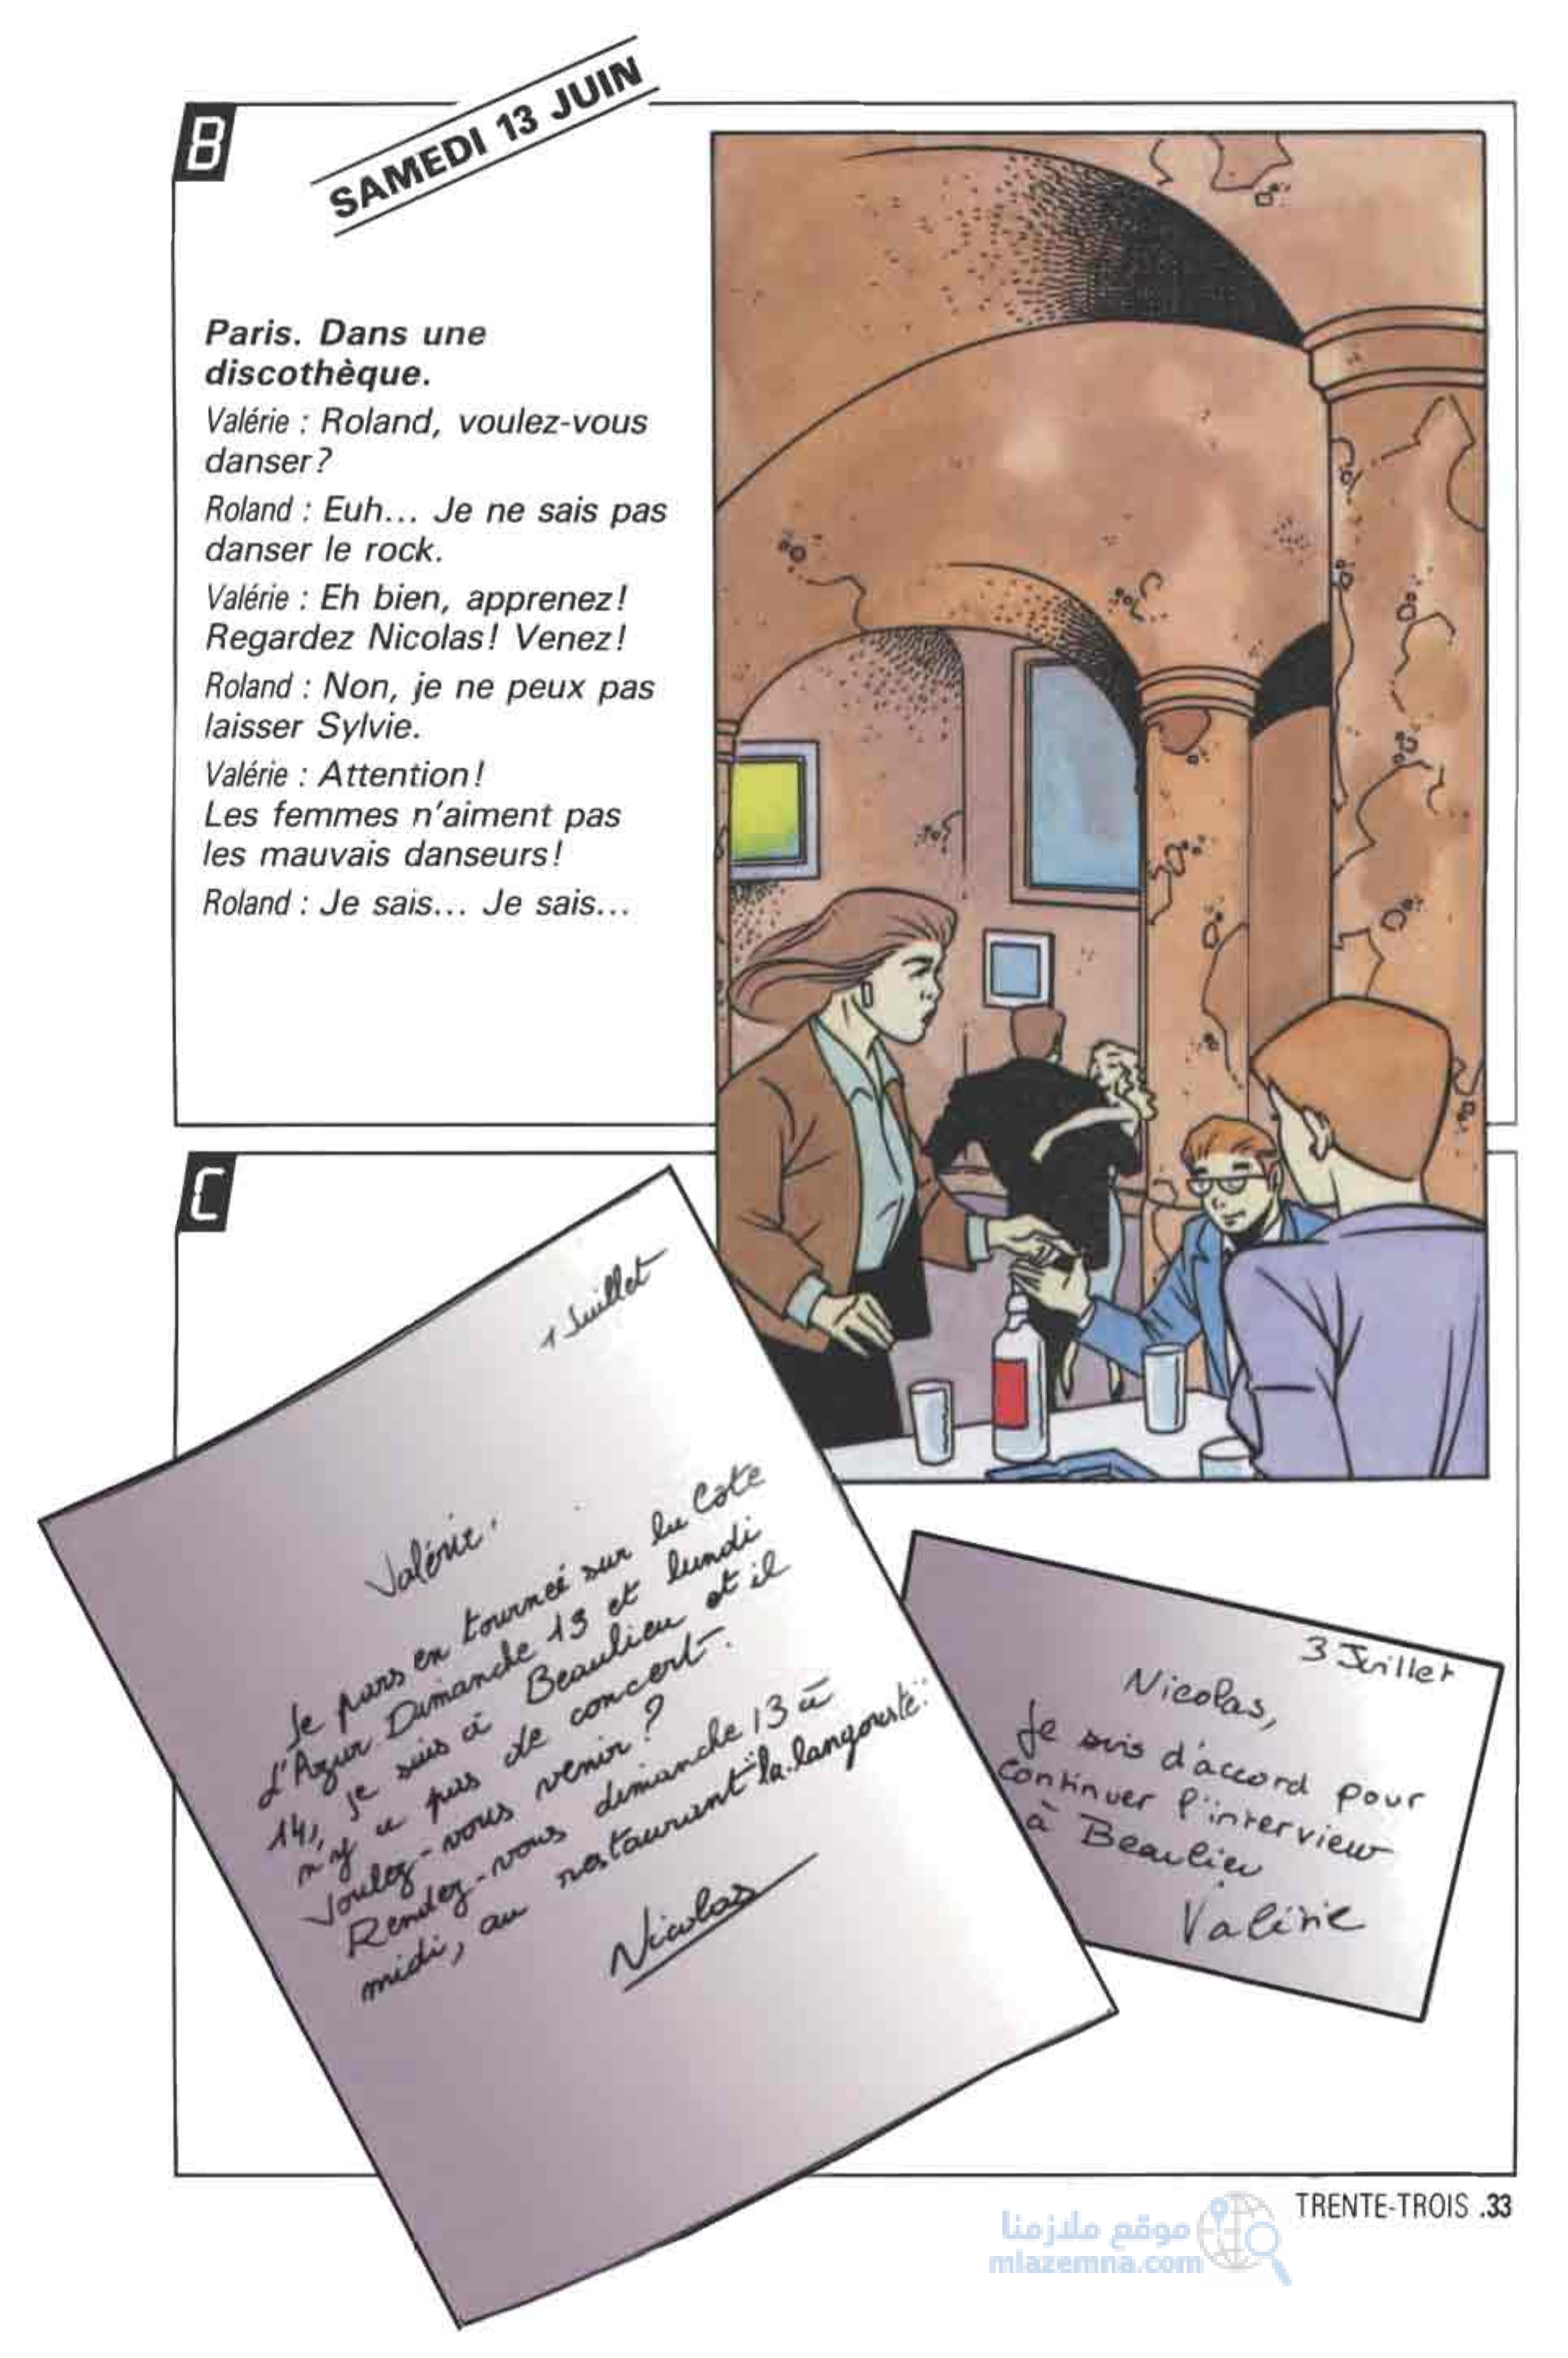 B
SAMEDI 13 JUIN
Paris. Dans une
discothèque.
Valérie : Roland, voulez-vous
danser?
Roland : Euh... Je ne sais pas
danser le rock.
Valérie : Eh bien, apprenez!
Regardez Nicolas! Venez!
Roland : Non, je ne peux pas
laisser Sylvie.
Valérie : Attention!
Les femmes n'aiment pas
les mauvais danseurs!
Roland : Je sais... Je sais...
C
1 Juillet
Valérie,
Je pars en tourneé sur la Côte
d'Azur Dimanche 13 et lundi
14, je suis à Beaulieu et il
n'y a pas de concert.
Voulez-vous venir?
Rendez-vous dimanche 13 à
midi, au restaurant "la langouste".
Nicolas
3 Juillet
Nicolas,
Je suis d'accord pour
continuer l'interview
à Beaulieu
Valérie
TRENTE-TROIS .33
موقع ملازمنا
mlazemna.com